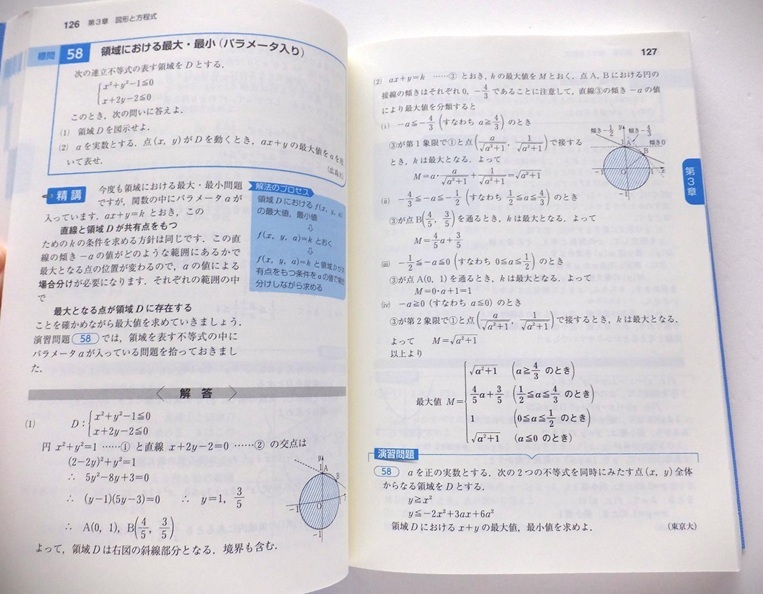 126 第3章 図形と方程式
標問 58 領域における最大・最小(パラメータ入り)
次の連立不等式の表す領域をDとする.
x²+y²-1≦0
x+2y-2≦0
このとき,次の問いに答えよ.
(1) 領域Dを図示せよ.
(2) aを実数とする.点(x, y)がDを動くとき,ax+yの最大値をaを用
いて表せ.
精講
今度も領域における最大・最小問題
ですが,関数の中にパラメータaが
入っています.ax+y=kとおき,この
直線と領域Dが共有点をもつ
ためのkの条件を求める方針は同じです.この直
線の傾き-aの値がどのような範囲にあるかで
最大となる点の位置が変わるので,aの値による
場合分けが必要になります.それぞれの範囲の中
で
最大となる点が領域Dに存在する
ことを確かめながら最大値を求めていきましょう.
演習問題 58 では,領域を表す不等式の中に
パラメータaが入っている問題を拾っておきまし
た.
解法のプロセス
領域Dにおけるf(x, y, a)
の最大値,最小値
⇩
f(x, y, a)=kとおく
⇩
f(x, y, a)=kと領域Dが共
有点をもつ条件をaの値で場合
分けしながら求める
〈 解 答 〉
(1) D:
x²+y²-1≦0
x+2y-2≦0
円x²+y²=1 ……① と直線x+2y-2=0 ……② の交点は
(2-2y)²+y²=1
∴ 5y²-8y+3=0
∴ (y-1)(5y-3)=0 ∴ y=1, 3/5
∴ A(0, 1), B(4/5, 3/5)
よって,領域Dは右図の斜線部分となる.境界も含む.
y
1 A
B
-1 O 1 x
-1
127
(2) ax+y=k ……③ とおき,kの最大値をMとおく.点A, Bにおける円の
接線の傾きはそれぞれ0, -4/3であることに注意して,直線③の傾き-aの値
により最大値を分類すると
(i) -a≦-4/3 (すなわちa≧4/3)のとき
③が第1象限で①と点(a/√a²+1, 1/√a²+1)で接する
とき,kは最大となる.よって
M=a・a/√a²+1+1/√a²+1=√a²+1
(ii) -4/3≦-a≦-1/2 (すなわち1/2≦a≦4/3)のとき
③が点B(4/5, 3/5)を通るとき,kは最大となる.よって
M=4/5a+3/5
(iii) -1/2≦-a≦0 (すなわち0≦a≦1/2)のとき
③が点A(0, 1)を通るとき,kは最大となる.よって
M=0・a+1=1
(iv) -a≧0 (すなわちa≦0)のとき
③が第2象限で①と点(a/√a²+1, 1/√a²+1)で接するとき,kは最大となる.
よって M=√a²+1
以上より
最大値 M=
√a²+1 (a≧4/3のとき)
4/5a+3/5 (1/2≦a≦4/3のとき)
1 (0≦a≦1/2のとき)
√a²+1 (a≦0のとき)
傾き-1/2 傾き-4/3
傾き0
A
B
第3章
演習問題
58 aを正の実数とする.次の2つの不等式を同時にみたす点(x, y)全体
からなる領域をDとする.
y≧x²
y≦-2x²+3ax+6a²
領域Dにおけるx+yの最大値,最小値を求めよ.
(東京大)